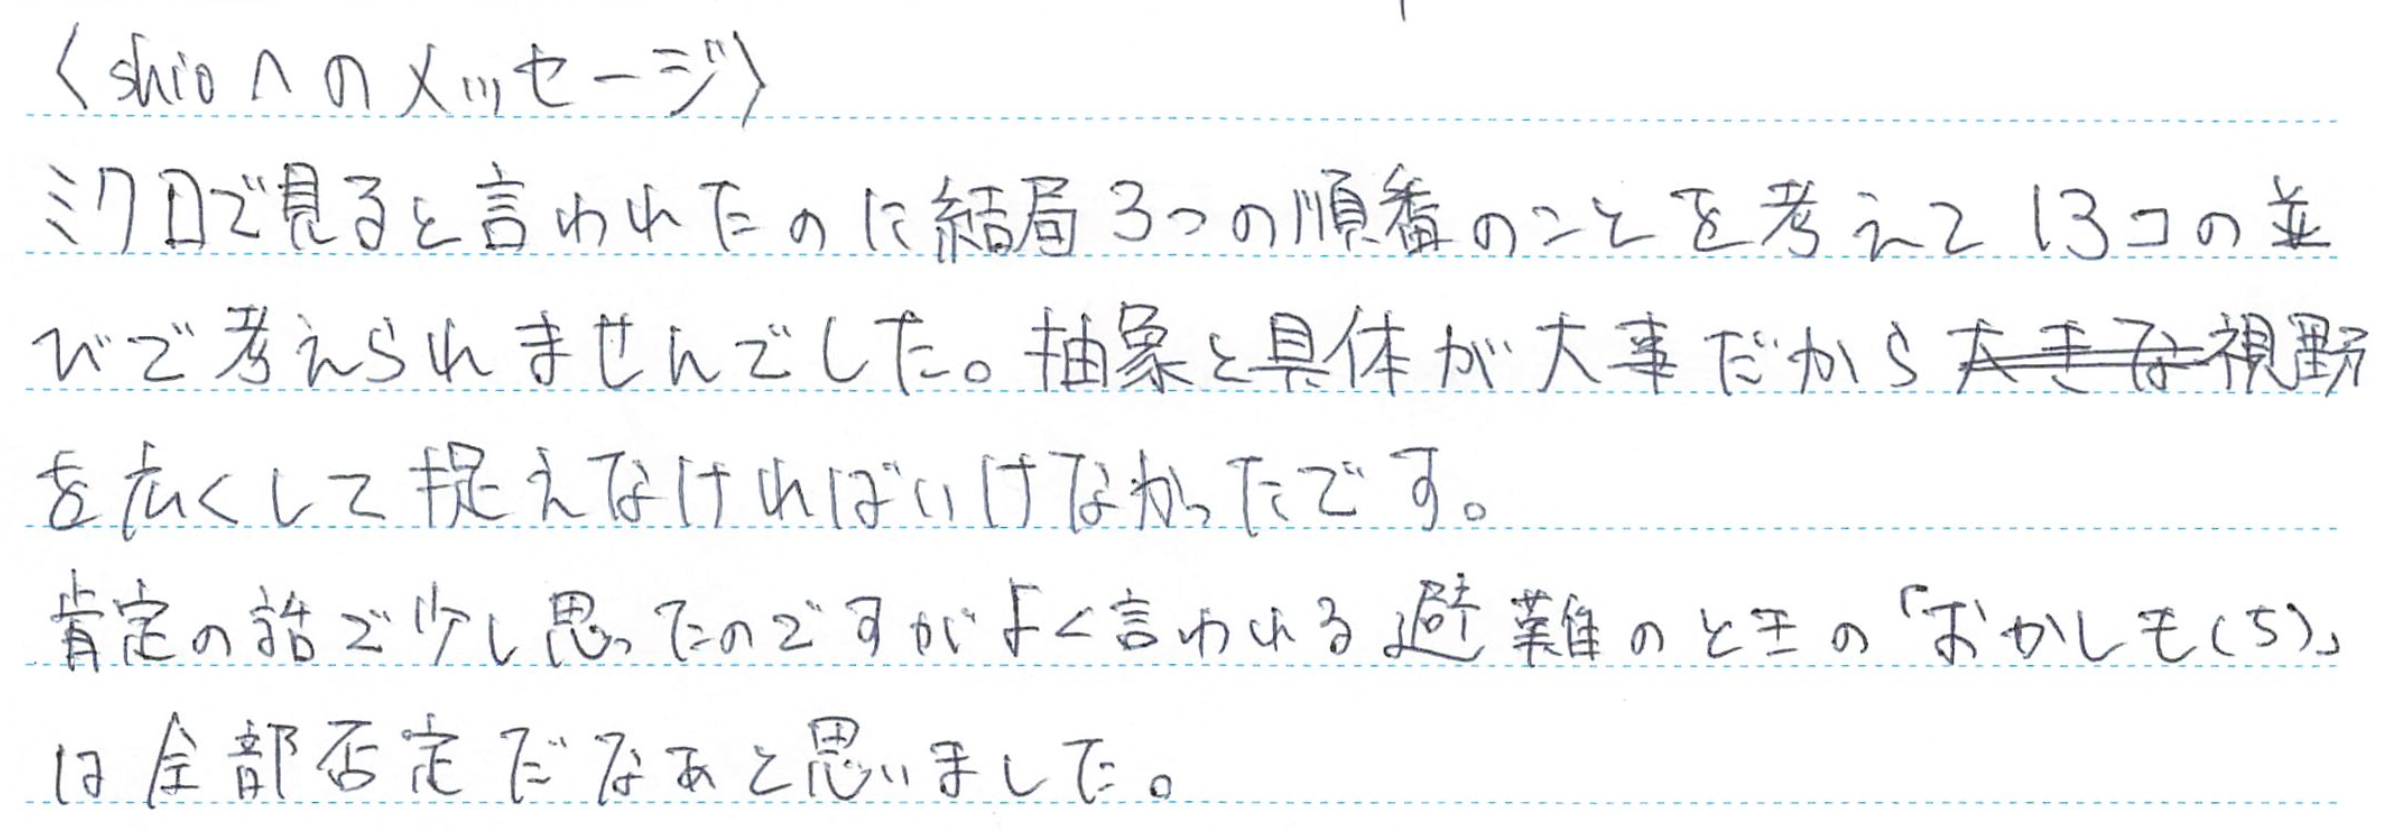 〈shioへのメッセージ〉
ミクロで見ると言われたのに結局3つの順番のことを考えて13コの並
びで考えられませんでした。抽象と具体が大事だから大きな視野
を広くして捉えなければいけなかったです。
肯定の話で少し思ったのですがよく言われる避難のときの「おかしも(ち)」
は全部否定だなぁと思いました。